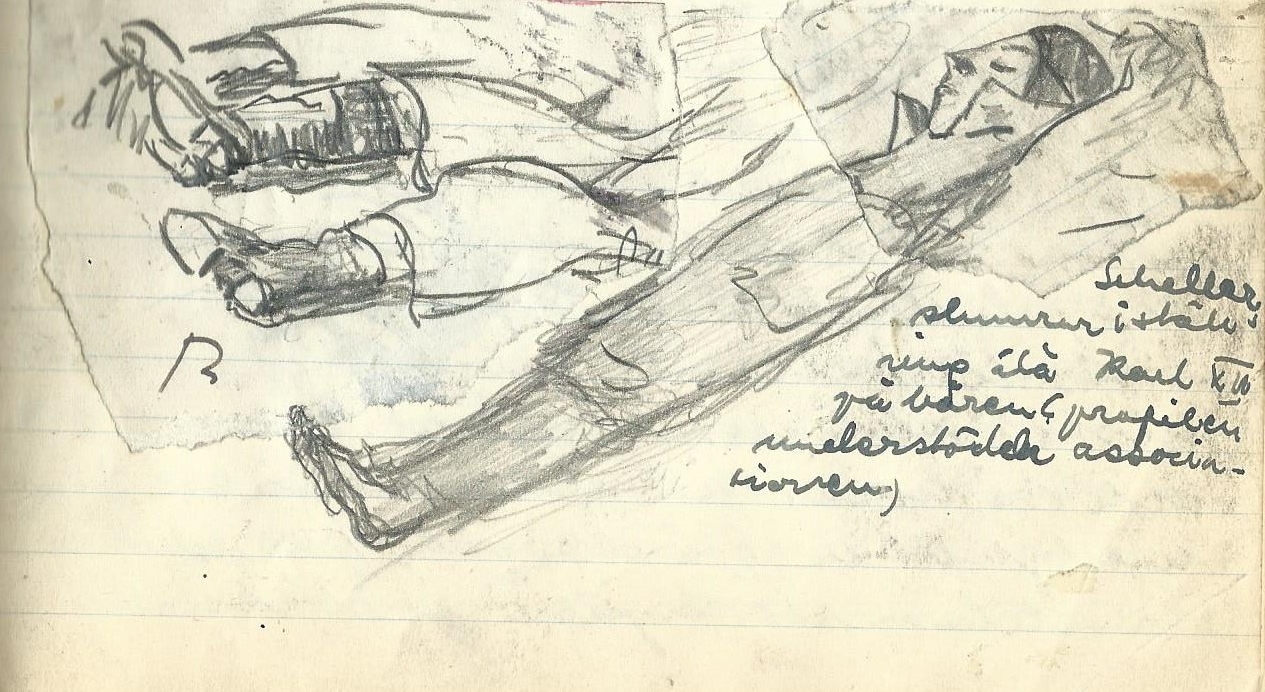 Scheller
slumrar i ställ-
ning álà Karl XII
på båren (profilen
understöder associa-
tionen)